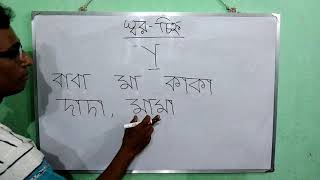 স্বর-চিহ্ন
া
বাবা মা কাকা
দাদা, মামা